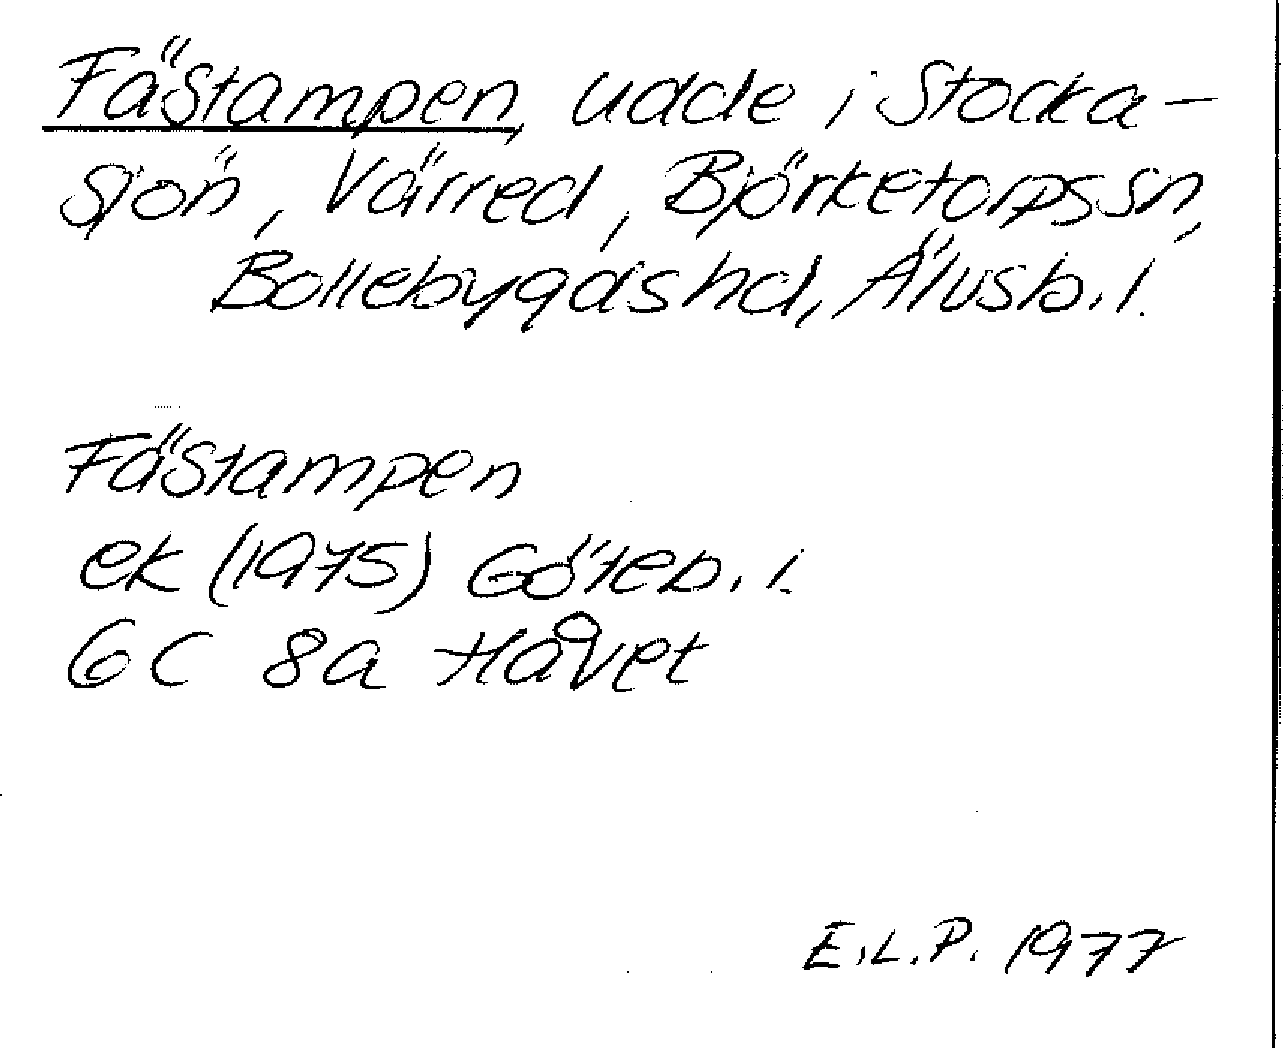 Fästampen, udde i Stocka-
sjön, Värred, Björketorps sn,
Bollebygds hd, Älvsb. l.
Fästampen
ek (1975) Göteb. l.
6C 8a Håvet
E.L.P. 1977